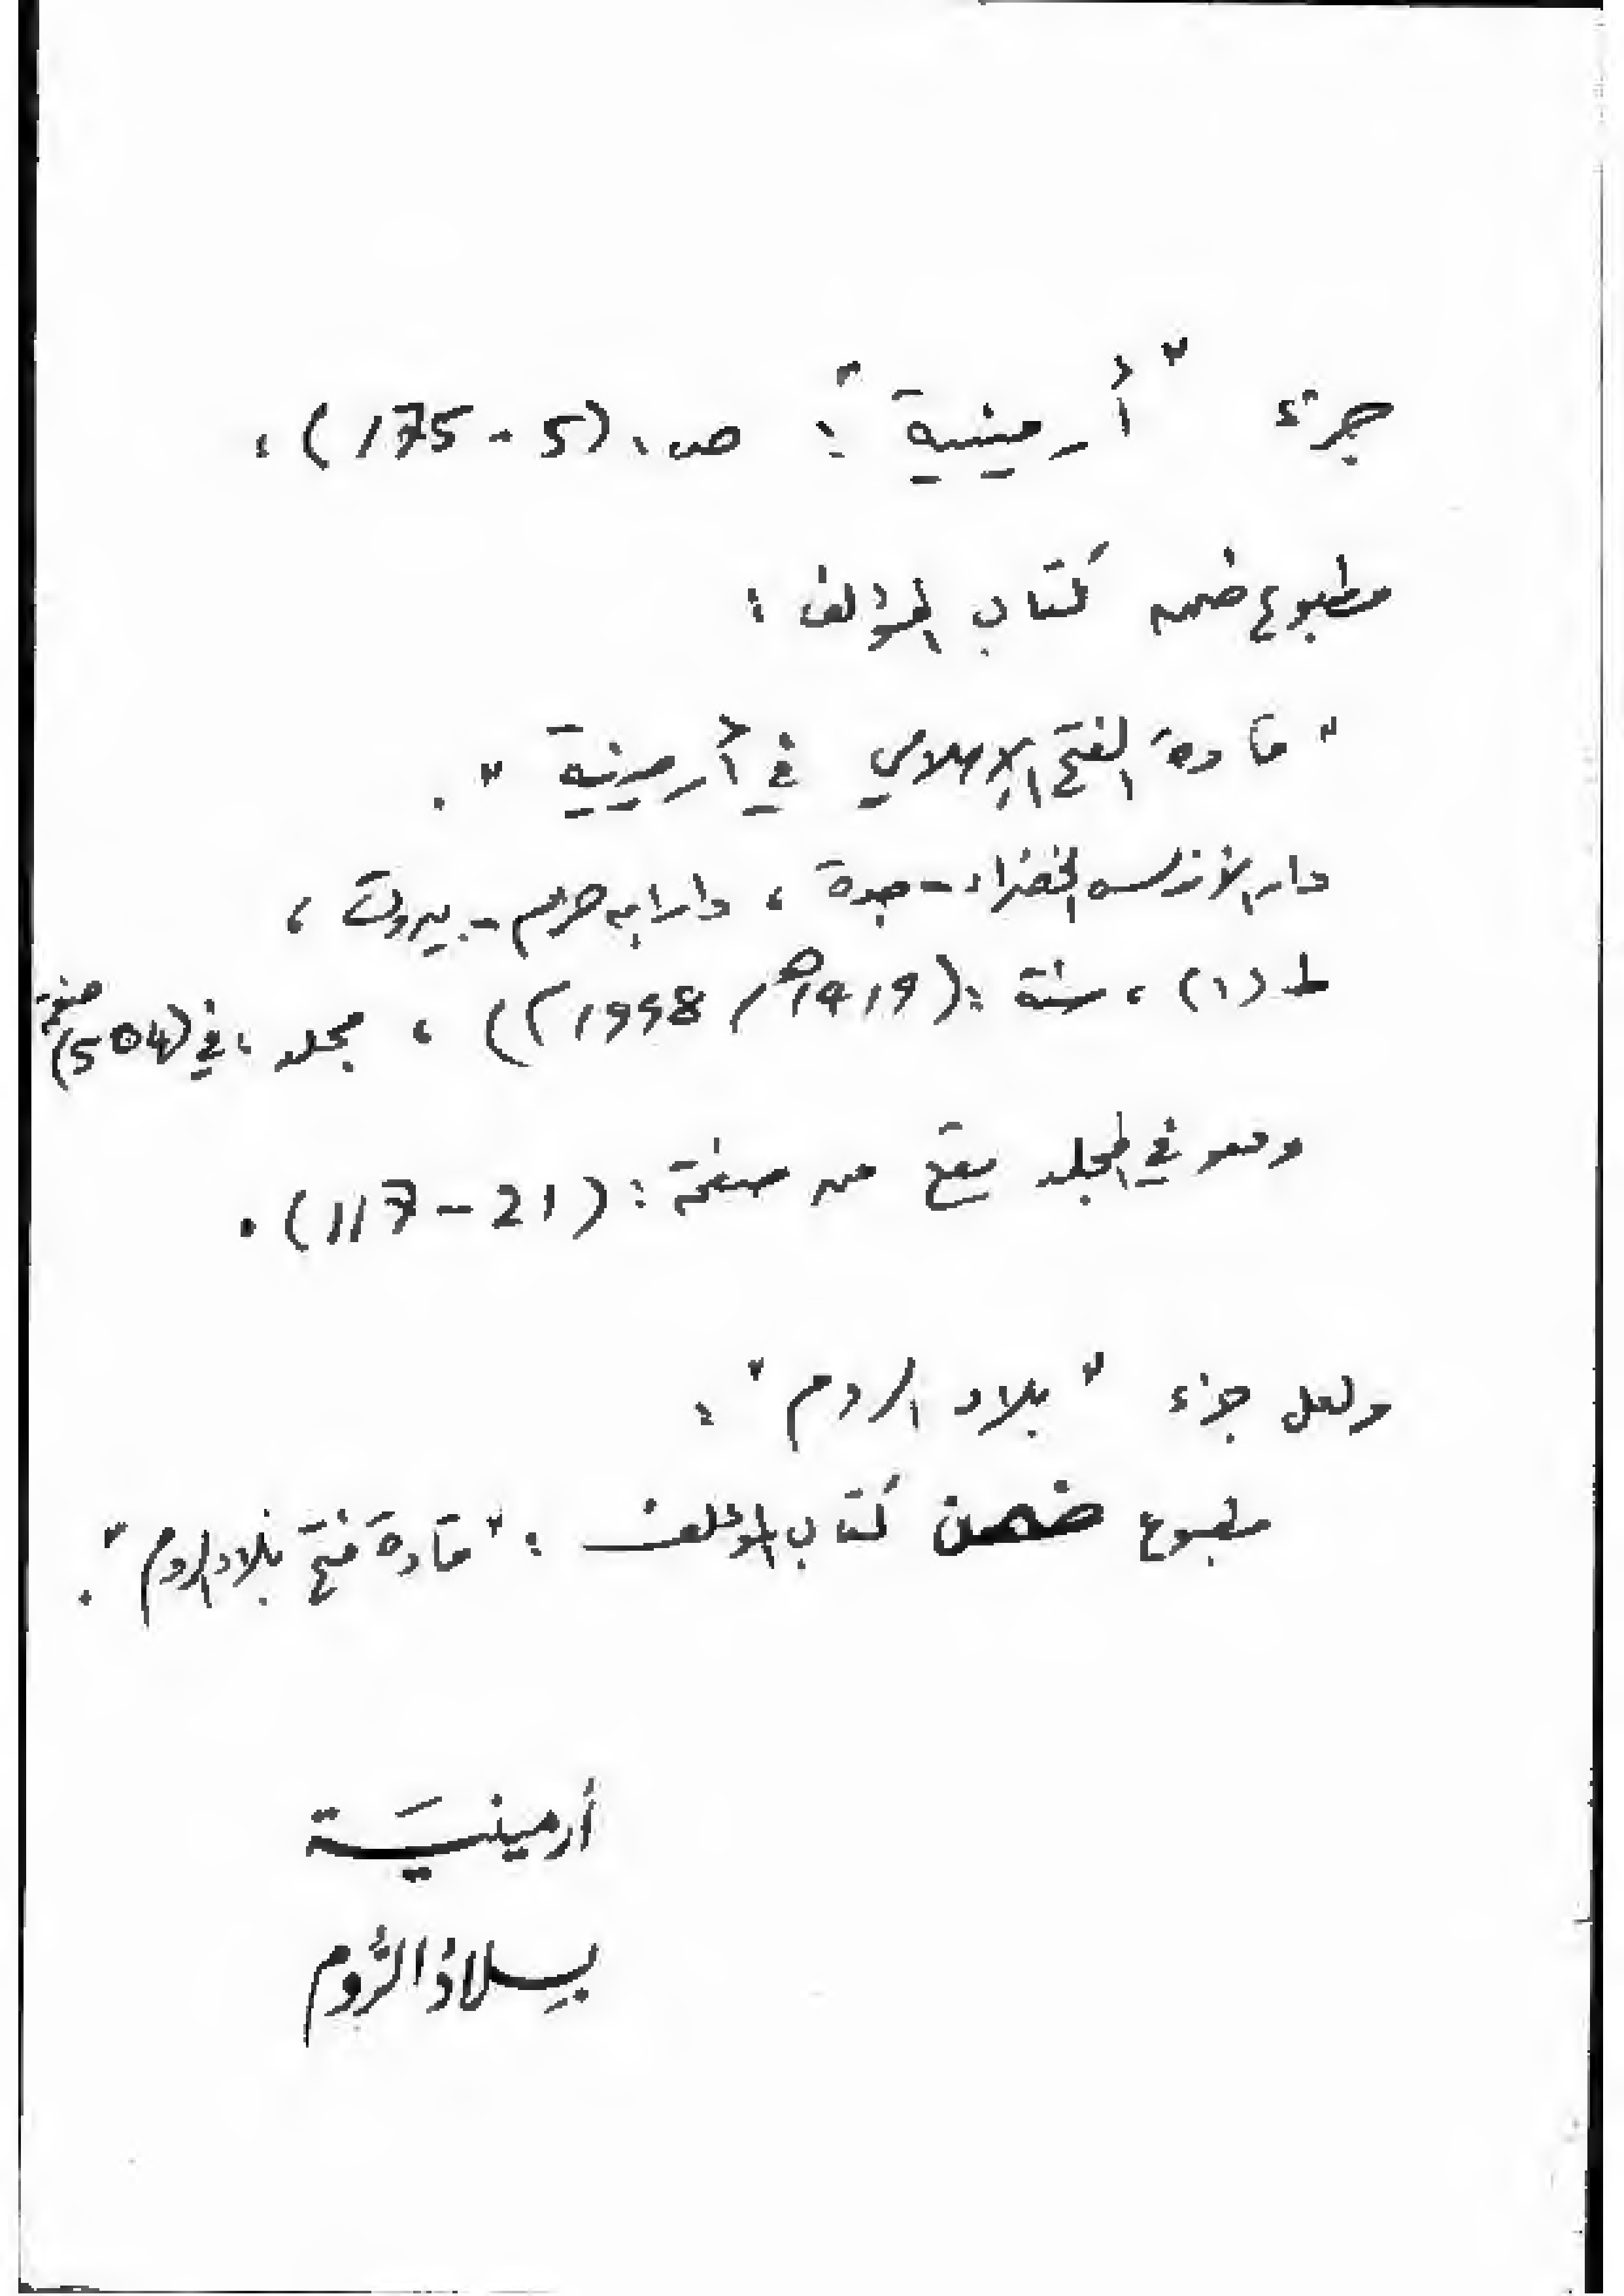 جزء "أرمينية": ص. (5 - 175)،
مطبوع ضمن كتاب المؤلف:
"قادة الفتح الإسلامي في أرمينية".
دار الأندلس الخضراء - جدة، دار ابن حزم - بيروت،
ط (١)، سنة: (1419هـ/ 1998م)، مجلد، في (504) صفحة
وهو في المجلد يقع من صفحة: (21 - 117).
ولعل جزء "بلاد الروم":
مطبوع ضمن كتاب المؤلف: "قادة فتح بلاد الروم".
أرمينيَة
بلادُ الرُّوم